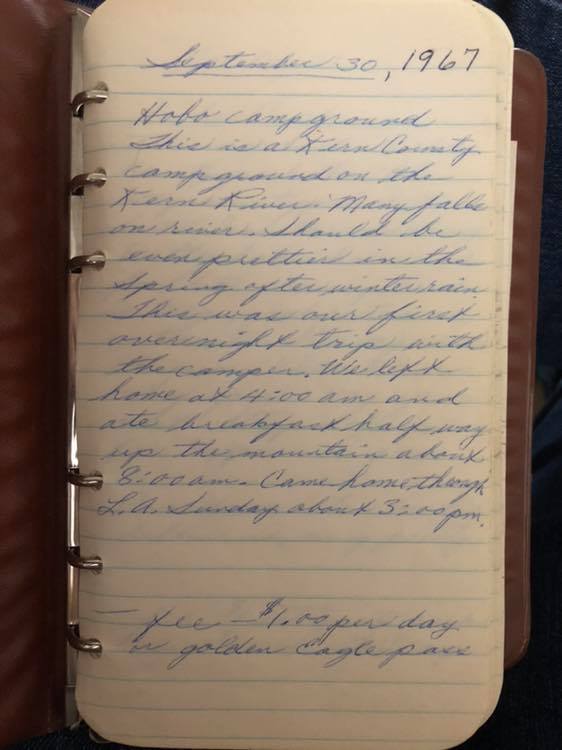 September 30, 1967
Hobo campground
This is a Kern County
campground on the
Kern River. Many falls
on river. Should be
even prettier in the
Spring after winter rain.
This was our first
overnight trip with
the camper. We left
home at 4:00 am and
ate breakfast half way
up the mountain about
8:00 am. Came home through
L.A. Sunday about 3:00 pm.
— fee — $1.00 per day
or golden Eagle pass